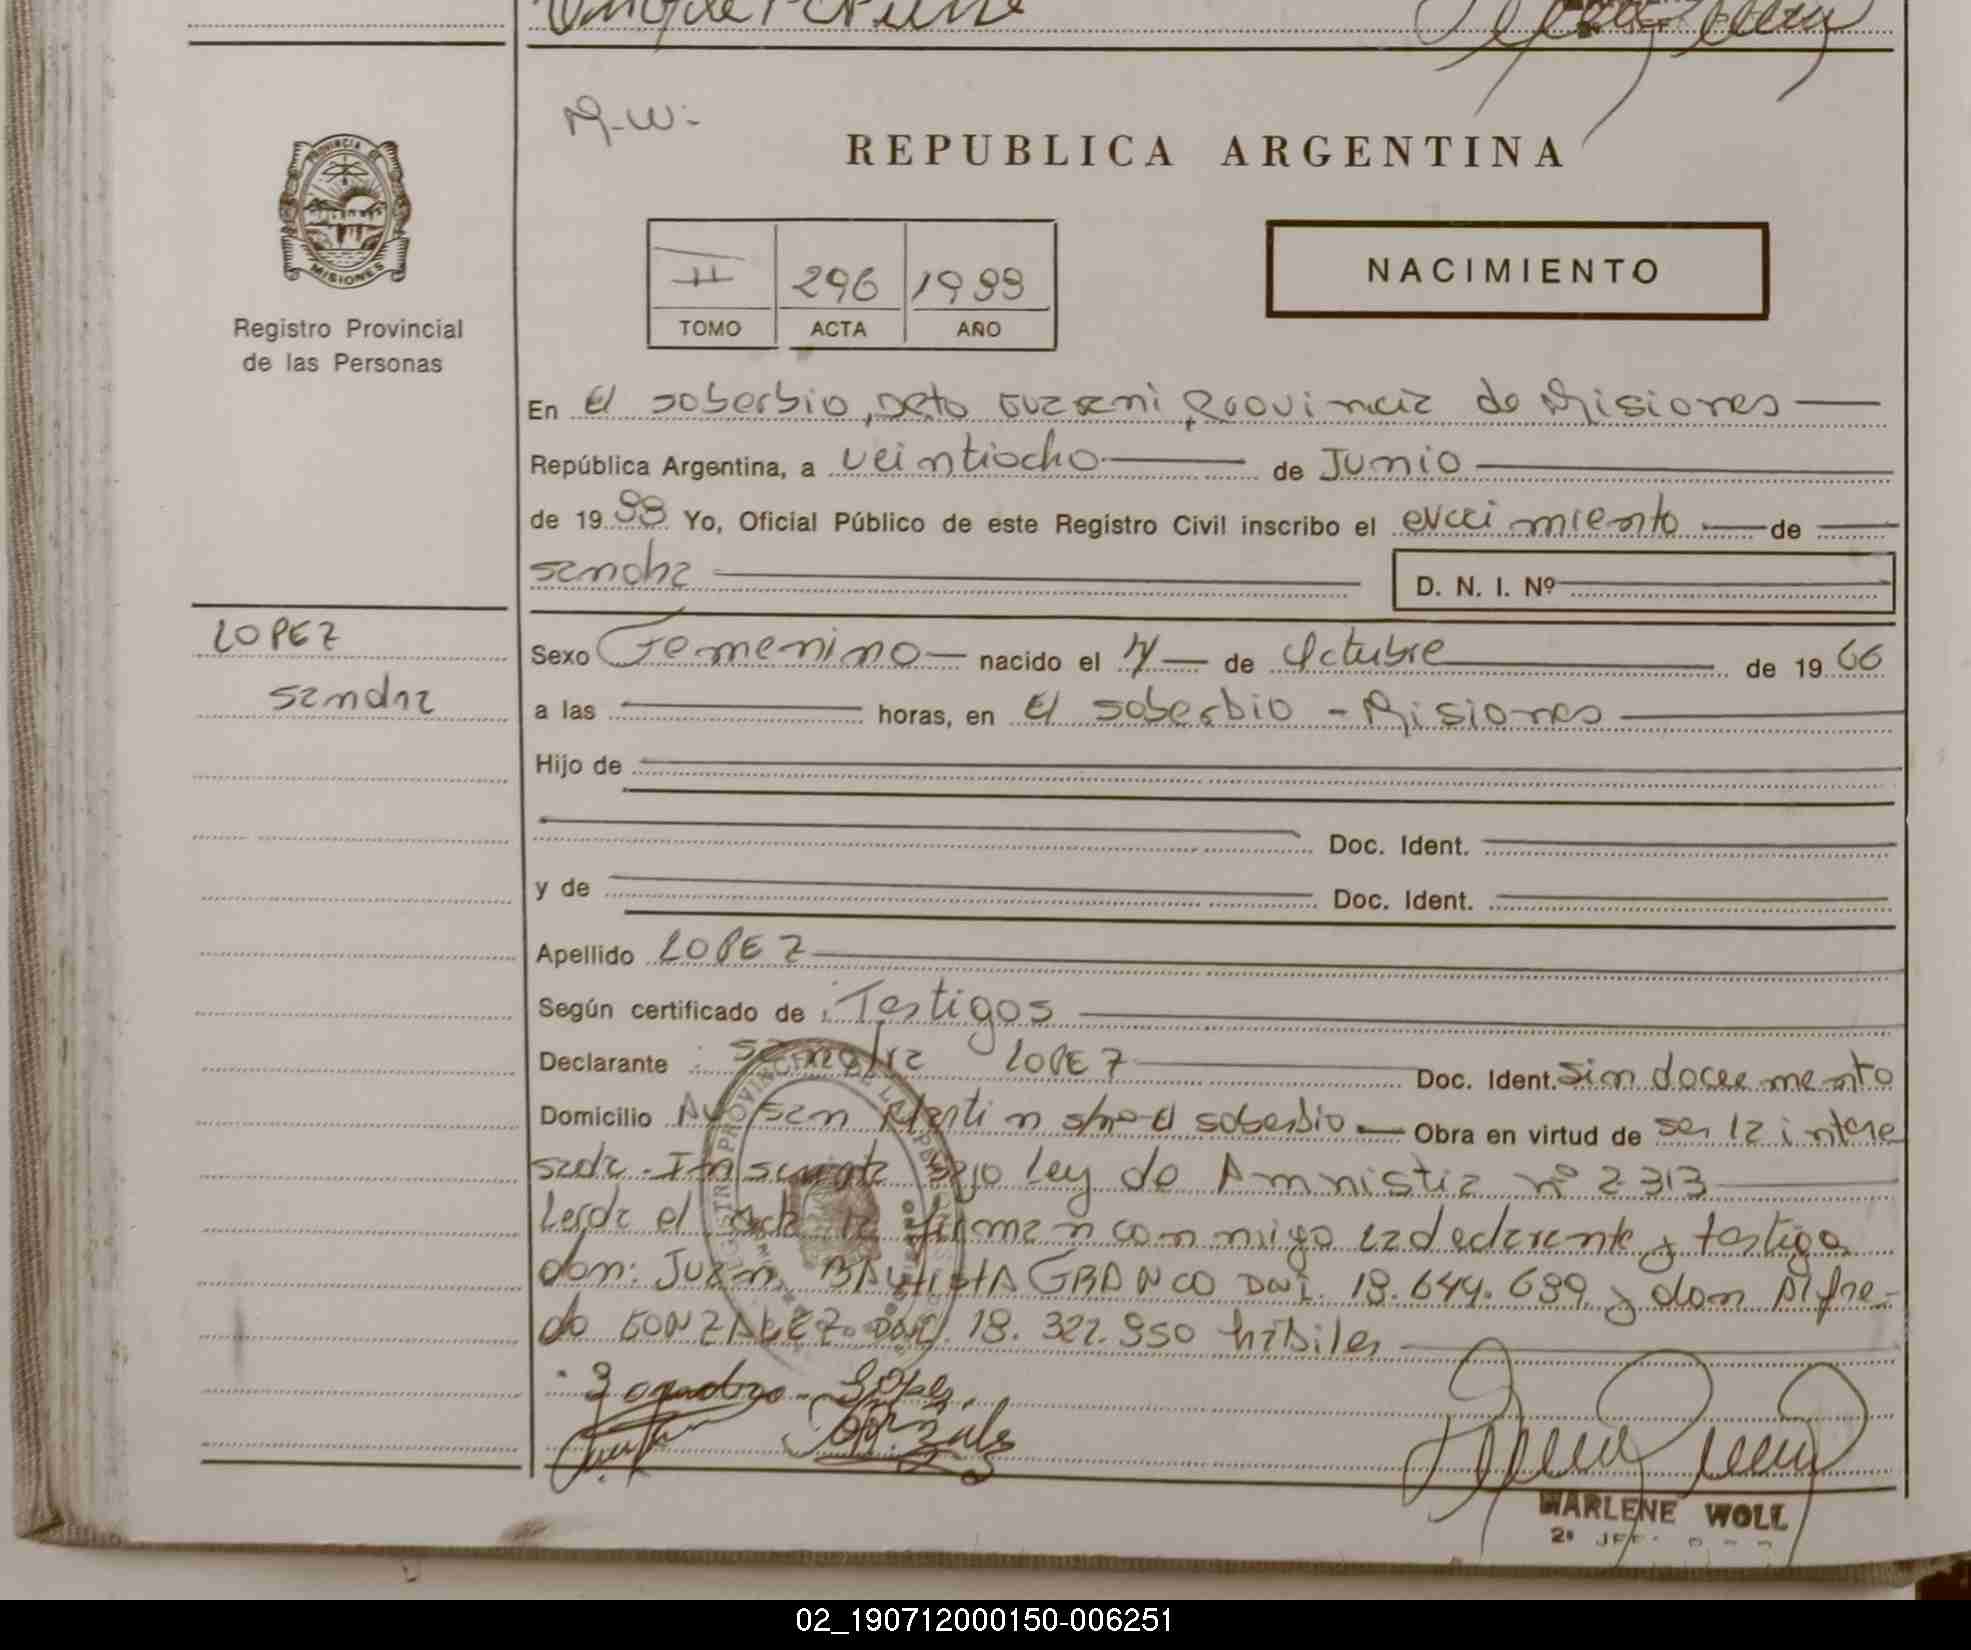 M.W.-
REPUBLICA ARGENTINA
PROVINCIA DE
MISIONES
Registro Provincial
de las Personas
II 296 1988
TOMO ACTA AÑO
NACIMIENTO
En El soberbio, Dpto Guarani, Provincia de Misiones
República Argentina, a veintiocho de Junio
de 1988 Yo, Oficial Público de este Registro Civil inscribo el de
Sandra
D. N. I. Nº
LOPEZ
Sandra
Sexo Femenino nacido el de Octubre de 1966
a las horas, en El soberbio - Misiones
Hijo de
Doc. Ident.
y de Doc. Ident.
Apellido LOPEZ
Según certificado de Testigos
Declarante Sandra LOPEZ Doc. Ident. sin documento
Domicilio Av san Martin s/no El soberbio Obra en virtud de ser la intere
sada. Inscripta bajo ley de Amnistia nº 2313
Leida el Acta la firman conmigo la declarante y testigo
don: Juan BAUTISTA GRANCO DNI. 18.644.689 y don Alfre-
do GONZALEZ DNI. 18.322.950 hábiles
Lopez
Gonzales
MARLENE WOLL
02_190712000150-006251